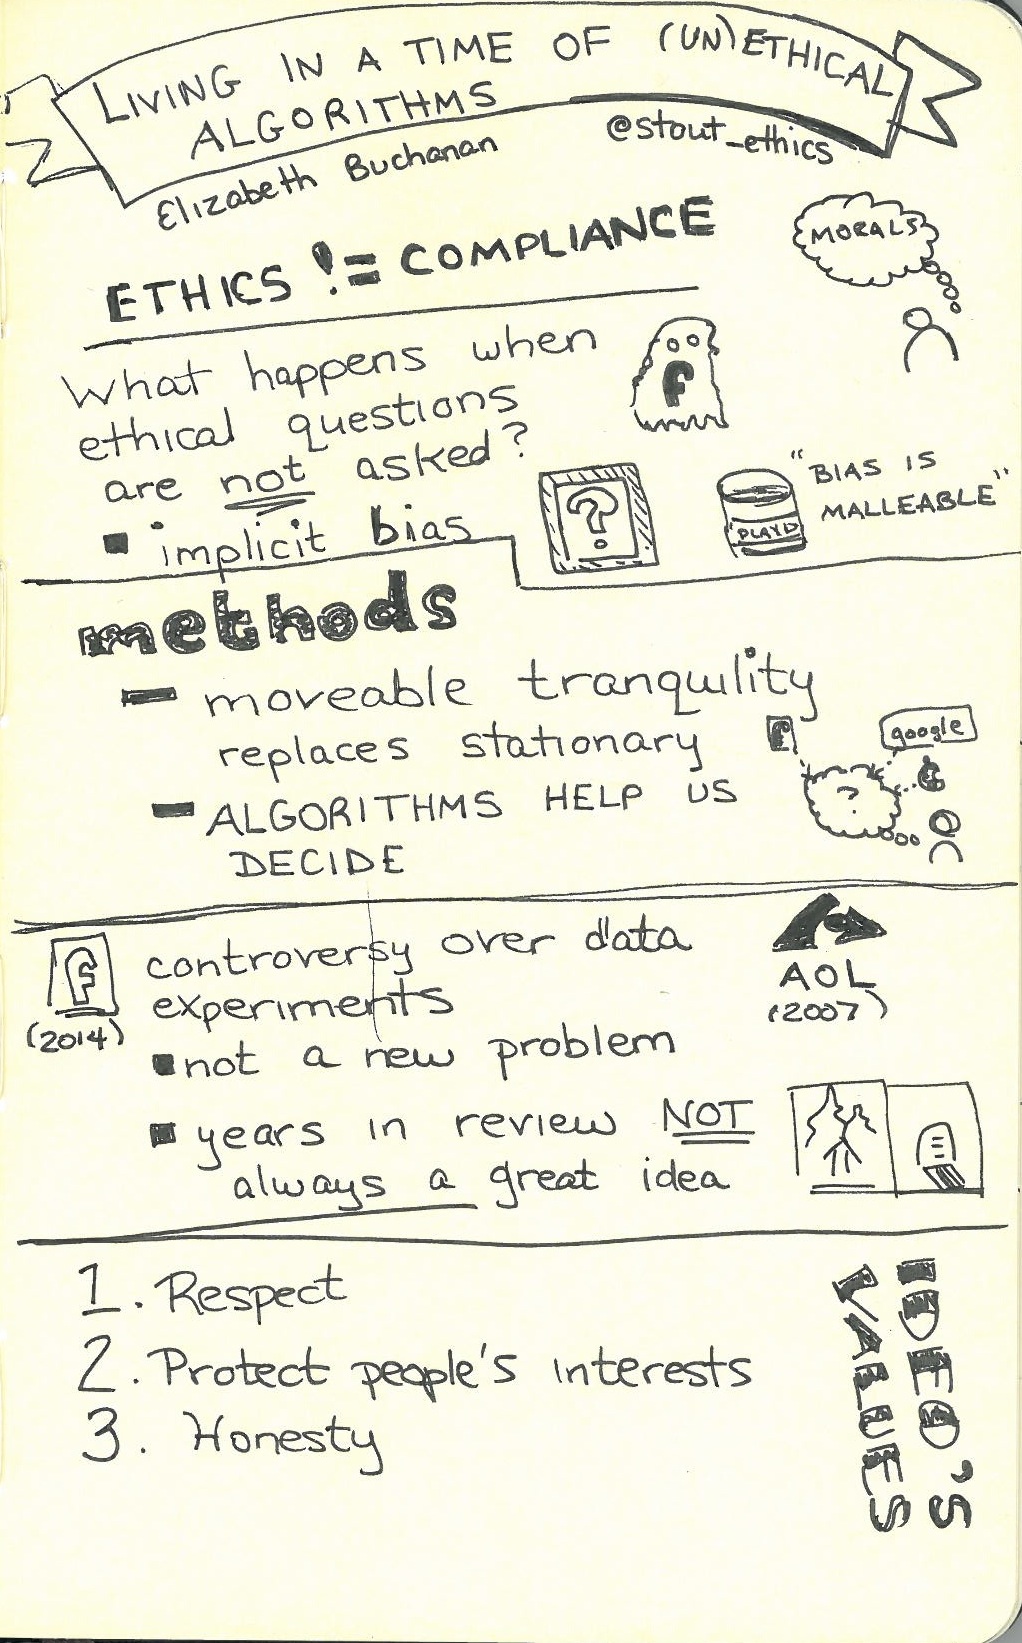 LIVING IN A TIME OF (UN)ETHICAL
ALGORITHMS
Elizabeth Buchanan
@stout_ethics
ETHICS != COMPLIANCE
MORALS
What happens when
ethical questions
are not asked?
f
▪ implicit bias
?
PLAYD
"BIAS IS
MALLEABLE"
methods
— moveable tranquility
replaces stationary
f
google
?
— ALGORITHMS HELP US
DECIDE
f
(2014)
controversy over data
experiments
AOL
(2007)
▪ not a new problem
▪ years in review NOT
always a great idea
1. Respect
2. Protect people's interests
3. Honesty
IDEO'S
VALUES